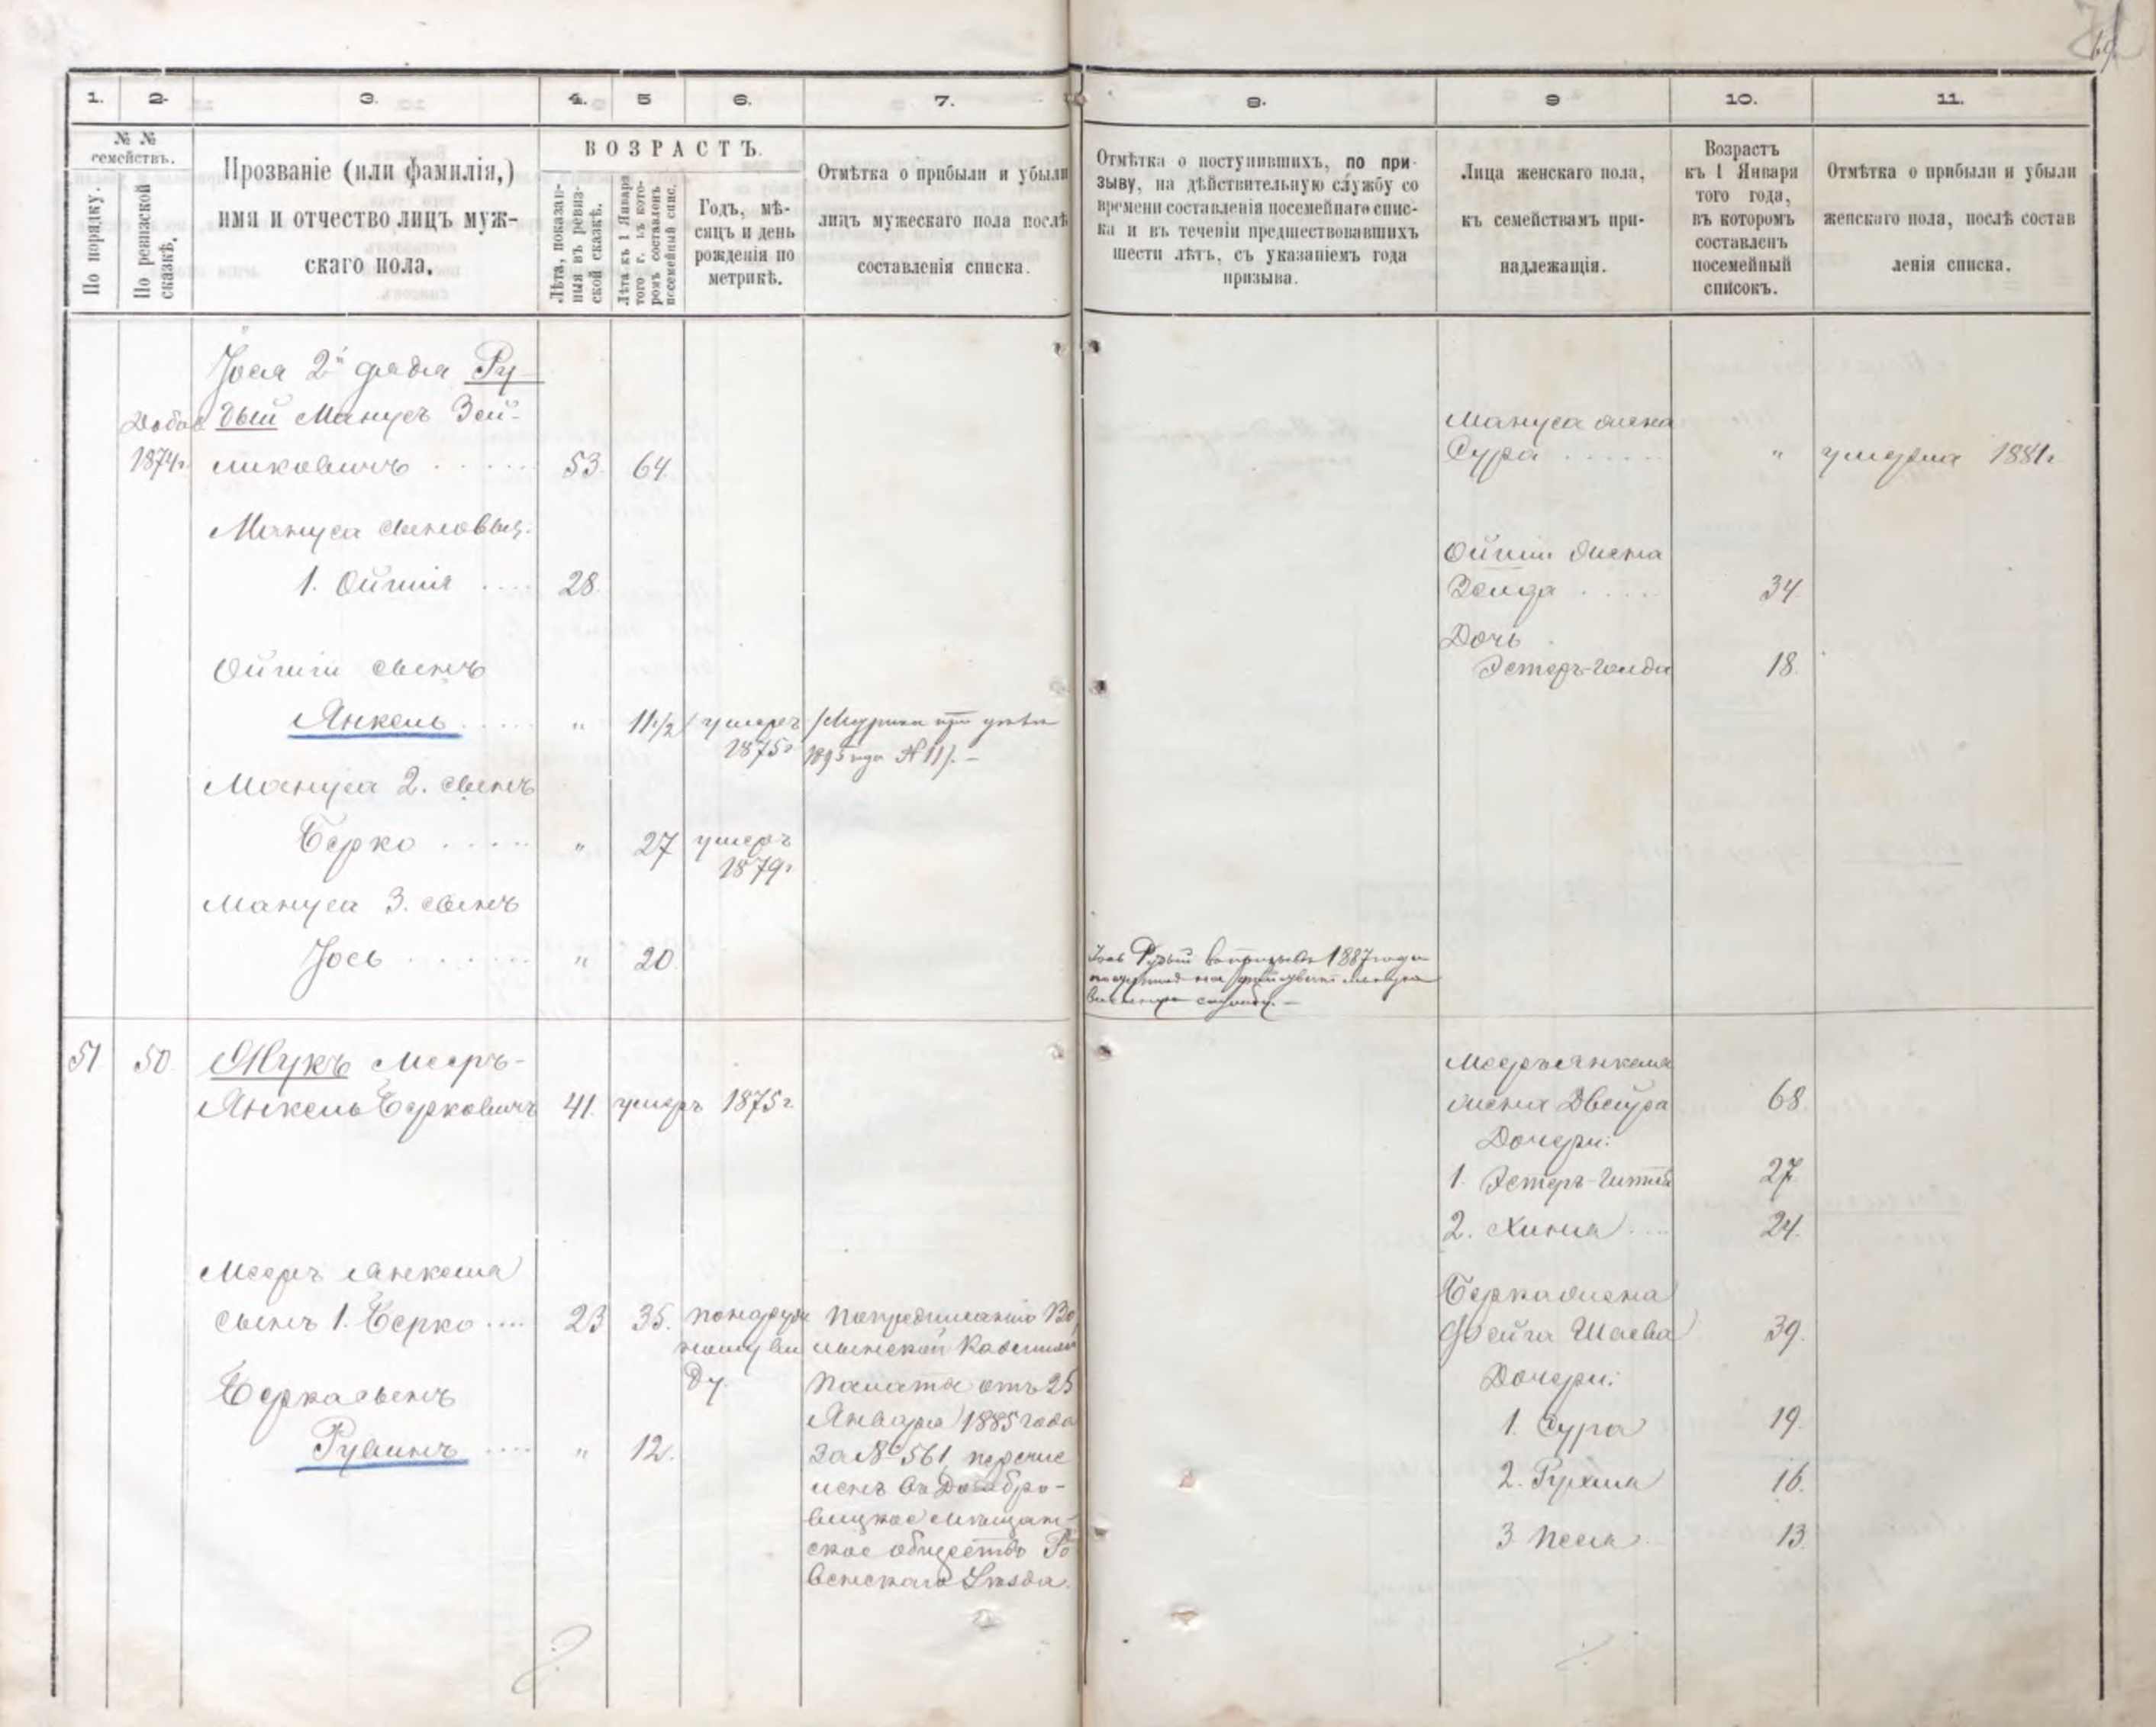 1. 2. 3. 4. 5 6. 7. 8. 9 10. 11.
№ №
семействъ.
По порядку.
По ревизской сказкѣ.
Прозваніе (или фамилія,)
имя и отчество лицъ муж-
скаго пола.
ВОЗРАСТЪ.
Лѣта, показан-
ныя въ ревиз-
ской сказкѣ.
Лѣта къ 1 Января
того г. въ кото-
ромъ составленъ
посемейный спис.
Годъ, мѣ-
сяцъ и день
рожденія по
метрикѣ.
Отмѣтка о прибыли и убыли
лицъ мужескаго пола послѣ
составленія списка.
Отмѣтка о поступившихъ, по при-
зыву, на дѣйствительную службу со
времени составленія посемейнаго спис-
ка и въ теченіи предшествовавшихъ
шести лѣтъ, съ указаніемъ года
призыва.
Лица женскаго пола,
къ семействамъ при-
надлежащія.
Возрастъ
къ 1 Января
того года,
въ которомъ
составленъ
посемейный
списокъ.
Отмѣтка о прибыли и убыли
женскаго пола, послѣ состав
ленія списка.
Йося 2й дядя Ру
дый Манусъ Зей-
1874г. ликовичъ 53. 64.
Мануса сыновья:
1. Ойшія 28.
Ойшіи сынъ
Янкель " 11 1/2 умеръ
1875г. 1895 года № 11). –
Мануса 2. сынъ
Берко " 27 умеръ
1879г.
Мануса 3. сынъ
Йось " 20.
Йось Рудый въ призывъ 1887 года
поступилъ на
военную службу. –
Мануса жена
Сура " умерла 1881г.
Ойшіи жена
Зелда 34.
Дочь
Эстеръ-Голда 18.
51 50. Жукъ Мееръ-
Янкель Берковичъ 41. умеръ 1875г.
Мееръ Янкеля
сынъ 1. Берко 23 35.
Берка сынъ
Рувинъ " 12.
По предписанію Во
лынской Казенной
Палаты отъ 25
Января 1885 года
за № 561, перечис
ленъ въ Домбро-
вицкое мѣщан-
ское общество Ро
венскаго уѣзда.
Мееръ Янкеля
жена Двейра 68.
Дочери:
1. Эстеръ-Гитля 27.
2. Хиня 24.
Берка жена
Фейга Шаева 39.
Дочери:
1. Сура 19.
2. Рухля 16.
3 Песя 13.